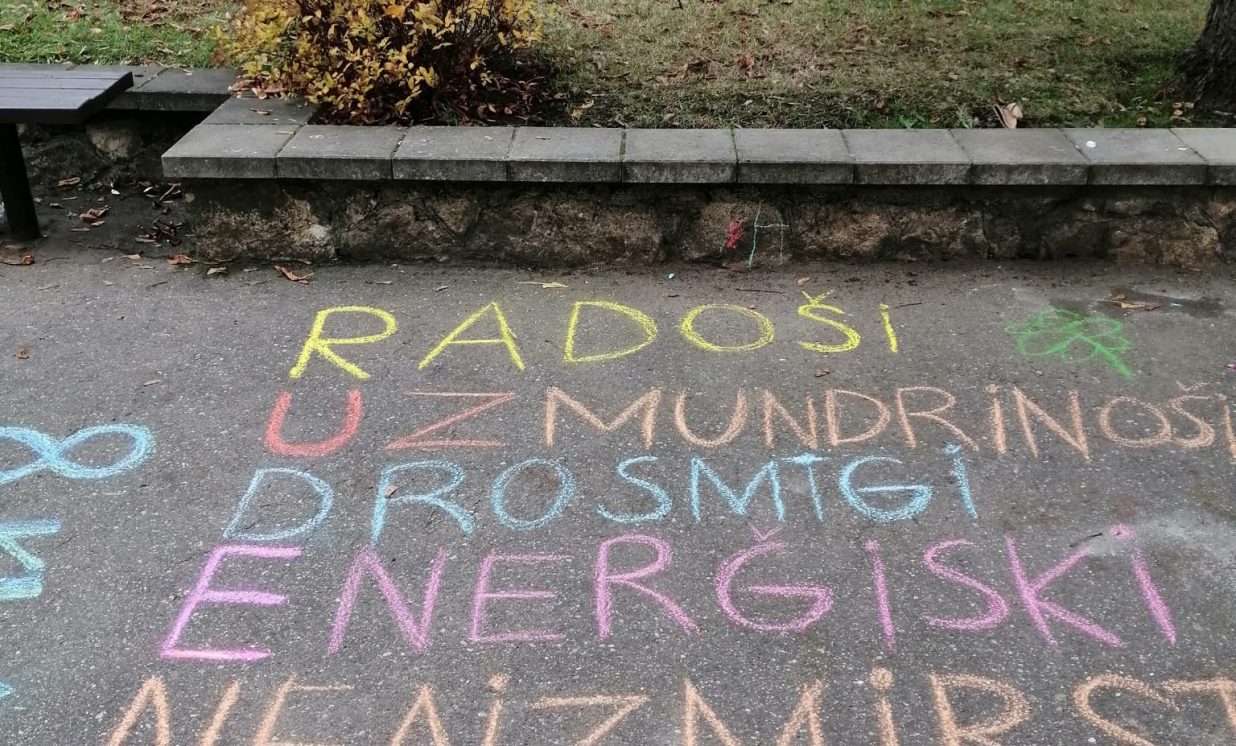 RADOŠI
UZMUNDRINOŠI
DROSMĪGI
ENERǦISKI
NEAIZMIRST